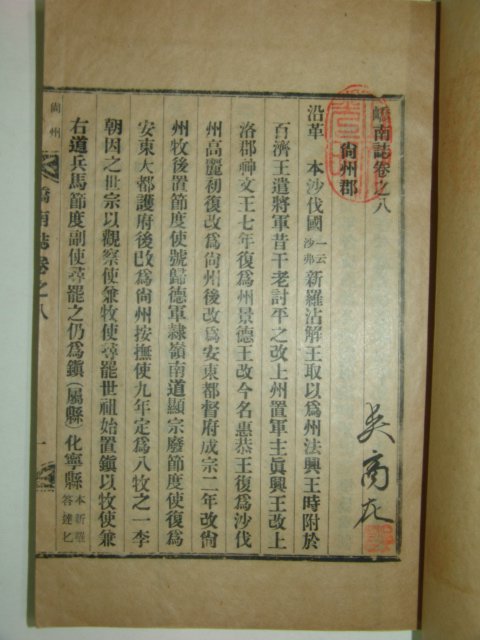 嶠南誌卷之八
尙州郡
沿革　本沙伐國一云沙弗新羅沾解王取以爲州法興王時附於
百濟王遣將軍昔干老討平之改上州置軍主眞興王改上
洛郡神文王七年復爲州景德王改今名惠恭王復爲沙伐
州高麗初復改爲尙州後改爲安東都督府成宗二年改尙
州牧後置節度使號歸德軍隷嶺南道顯宗廢節度使復爲
安東大都護府後改爲尙州按撫使九年定爲八牧之一李
朝因之世宗以觀察使兼牧使尋罷世祖始置鎭以牧使兼
右道兵馬節度副使尋罷之仍爲鎭（屬縣）化寧縣本新羅答達匕
尙州
嶠南誌卷之八
一